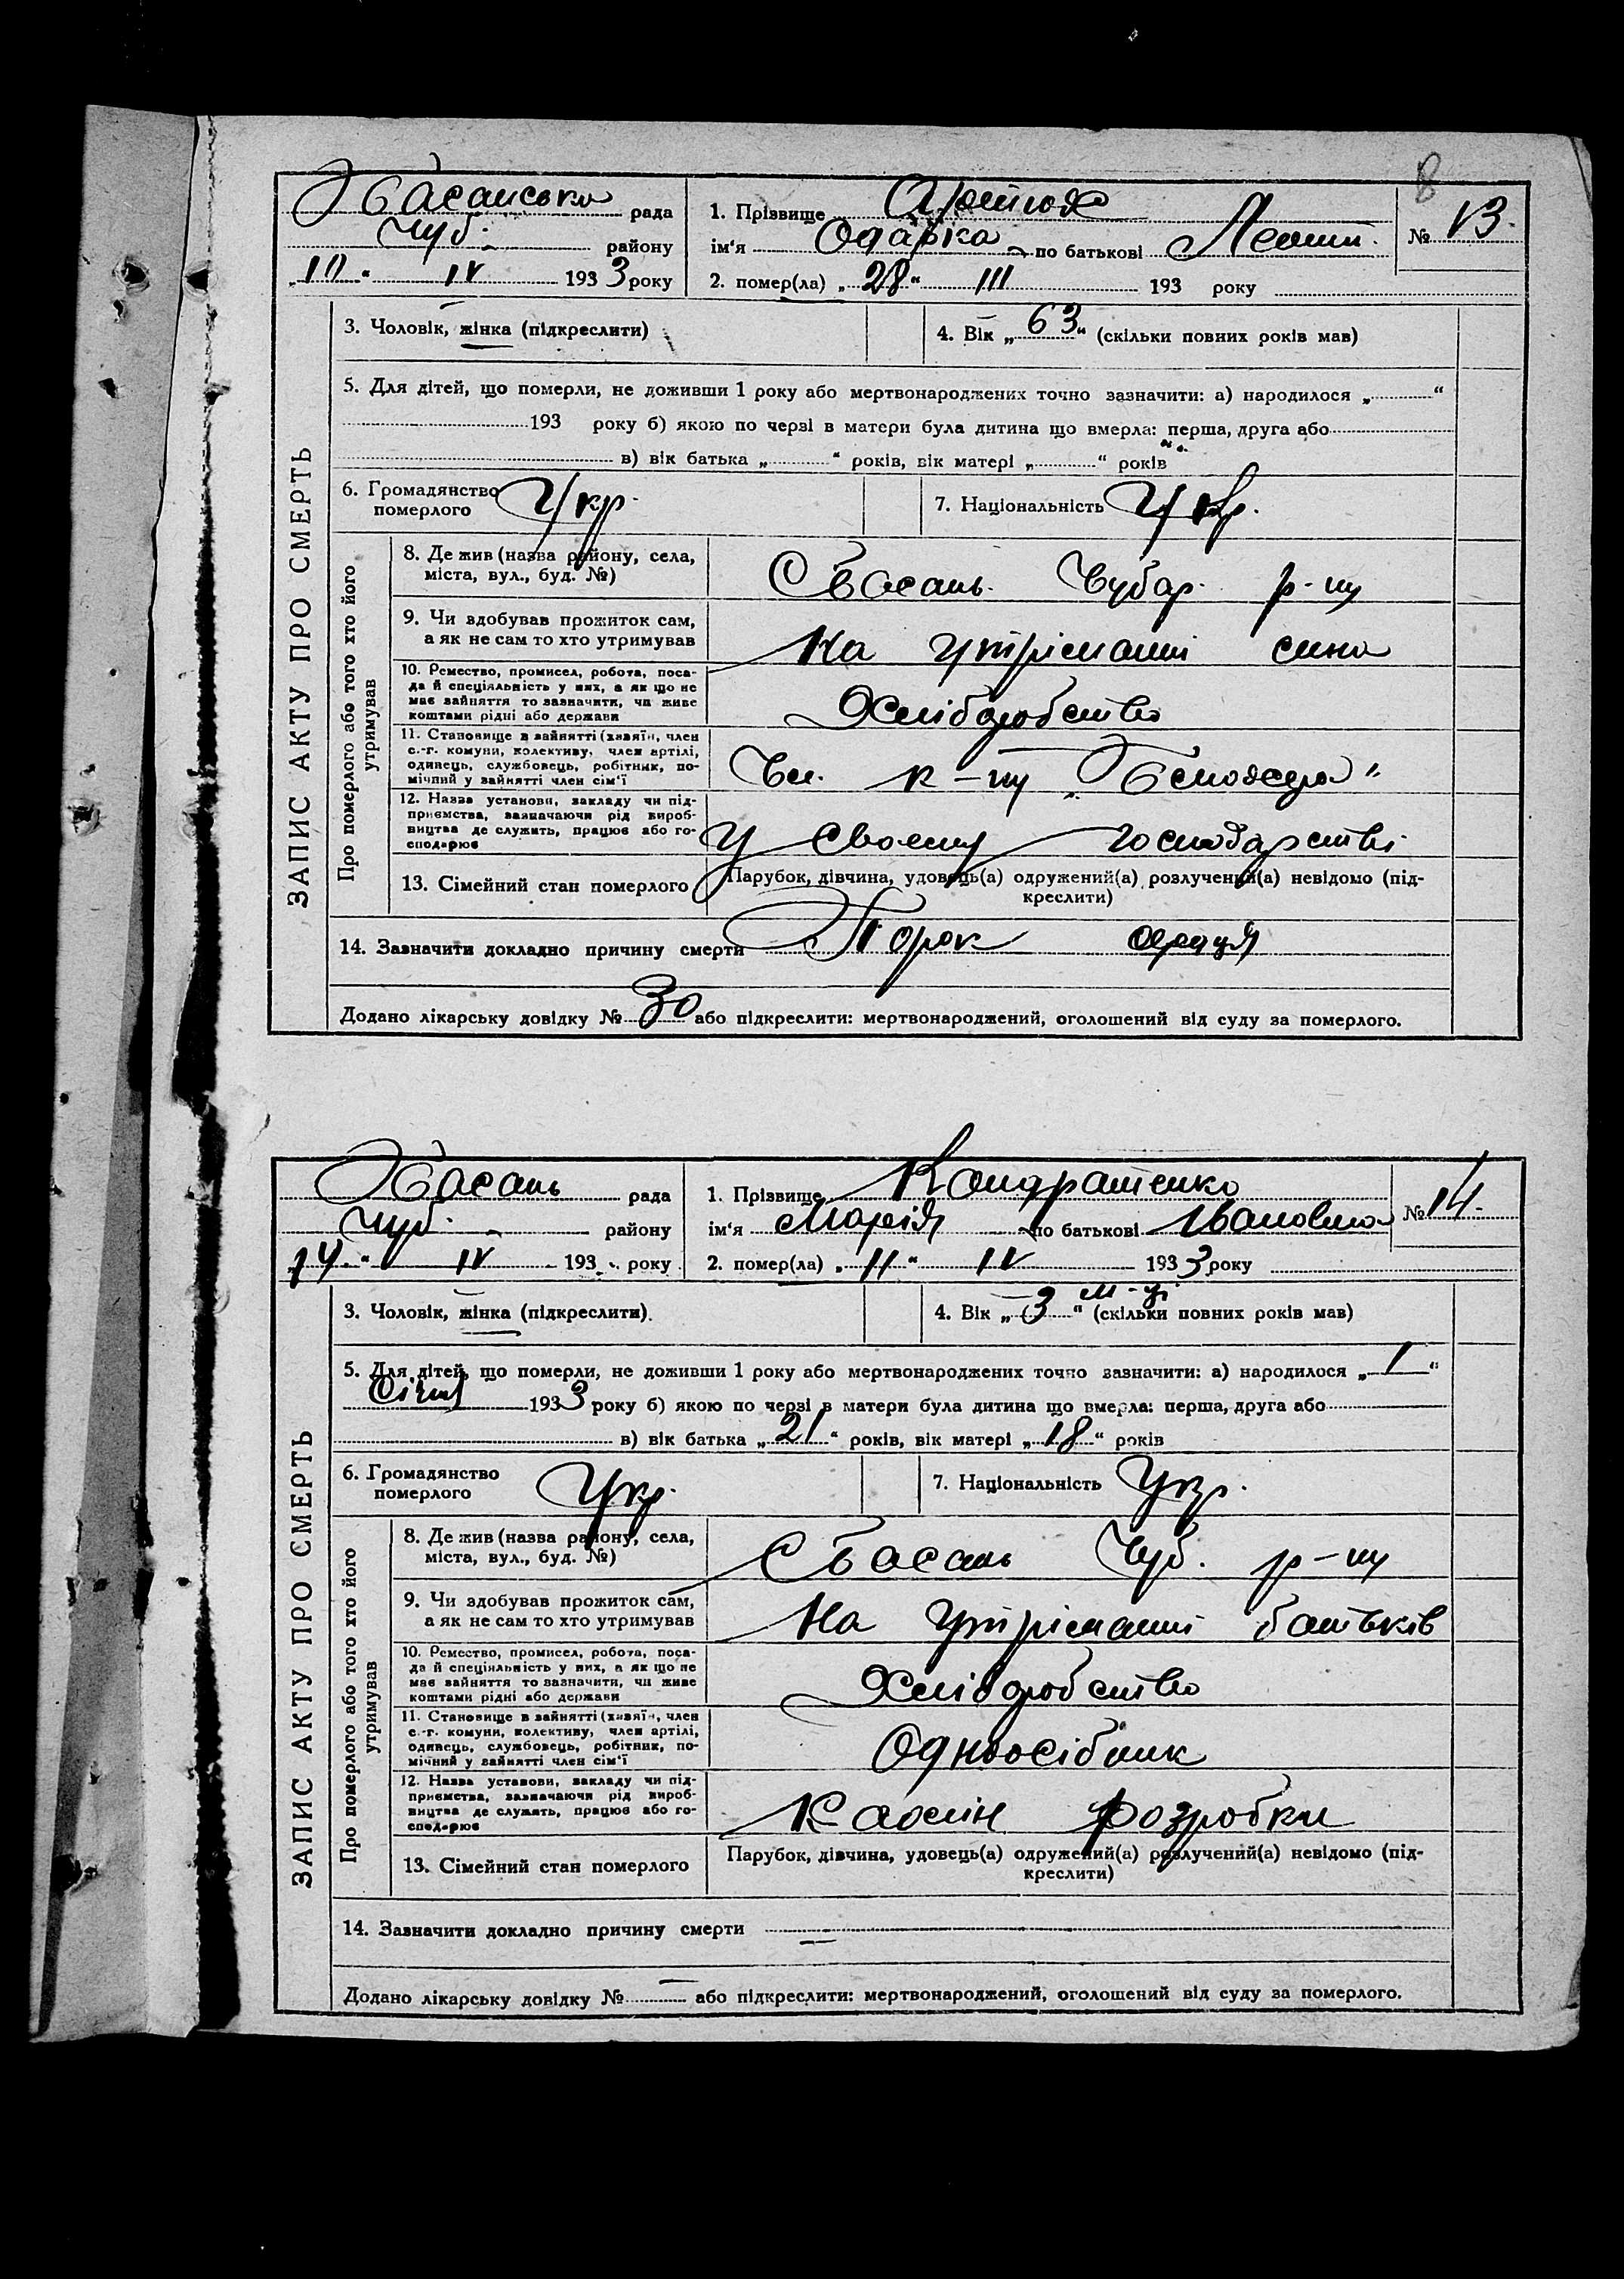 8
Басанська рада
Чуб. району
„10“ IV 1933 року
1. Прізвище
ім'я Одарка по батькові
№ 13.
2. помер(ла) „28“ III 193 року
ЗАПИС АКТУ ПРО СМЕРТЬ
3. Чоловік, жінка (підкреслити)
4. Вік „63“ (скільки повних років мав)
5. Для дітей, що померли, не доживши 1 року або мертвонароджених точно зазначити: а) народилося „ “
193 року б) якою по черзі в матери була дитина що вмерла: перша, друга або
в) вік батька „ “ років, вік матері „ “ років
6. Громадянство померлого Укр.
7. Національність Укр.
Про померлого або того хто його утримував
8. Де жив (назва району, села,
міста, вул., буд. №)
С Басань. Чубар. р-ну
9. Чи здобував прожиток сам,
а як не сам то хто утримував
На утріманні сина
10. Ремество, промисел, робота, поса-
да й спеціяльність у них, а як що не
має зайняття то зазначити, чи живе
коштами рідні або держави
Хліборобство
11. Становище в зайнятті (хазяїн, член
с.-г. комуни, колективу, член артілі,
одинець, службовець, робітник, по-
мічний у зайнятті член сім'ї
Чл. к-ну
12. Назва установи, закладу чи під-
приємства, зазначаючи рід вироб-
ництва де служить, працює або го-
сподарює
У своему господарстві
13. Сімейний стан померлого
Парубок, дівчина, удовець(а) одружений(а) розлучений(а) невідомо (під-
креслити)
14. Зазначити докладно причину смерти Порок серця
Додано лікарську довідку № 30 або підкреслити: мертвонароджений, оголошений від суду за померлого.
Басань рада
Чуб. району
„14“ IV 193 року
1. Прізвище Кондратенко
ім'я Марія по батькові Івановна
№ 14.
2. помер(ла) „11“ IV 1933 року
ЗАПИС АКТУ ПРО СМЕРТЬ
3. Чоловік, жінка (підкреслити).
4. Вік „3“ м-ці (скільки повних років мав)
5. Для дітей, що померли, не доживши 1 року або мертвонароджених точно зазначити: а) народилося „1“
Січня 1933 року б) якою по черзі в матери була дитина що вмерла: перша, друга або
в) вік батька „21“ років, вік матері „18“ років
6. Громадянство померлого Укр.
7. Національність Укр.
Про померлого або того хто його утримував
8. Де жив (назва району, села,
міста, вул., буд. №)
С Басань Чуб. р-ну
9. Чи здобував прожиток сам,
а як не сам то хто утримував
На утріманні батьків
10. Ремество, промисел, робота, поса-
да й спеціяльність у них, а як що не
має зайняття то зазначити, чи живе
коштами рідні або держави
Хліборобство
11. Становище в зайнятті (хазяїн, член
с.-г. комуни, колективу, член артілі,
одинець, службовець, робітник, по-
мічний у зайнятті член сім'ї
Одноосібник
12. Назва установи, закладу чи під-
приємства, зазначаючи рід вироб-
ництва де служить, працює або го-
сподарює
Каолін розробки
13. Сімейний стан померлого
Парубок, дівчина, удовець(а) одружений(а) розлучений(а) невідомо (під-
креслити)
14. Зазначити докладно причину смерти
Додано лікарську довідку № або підкреслити: мертвонароджений, оголошений від суду за померлого.